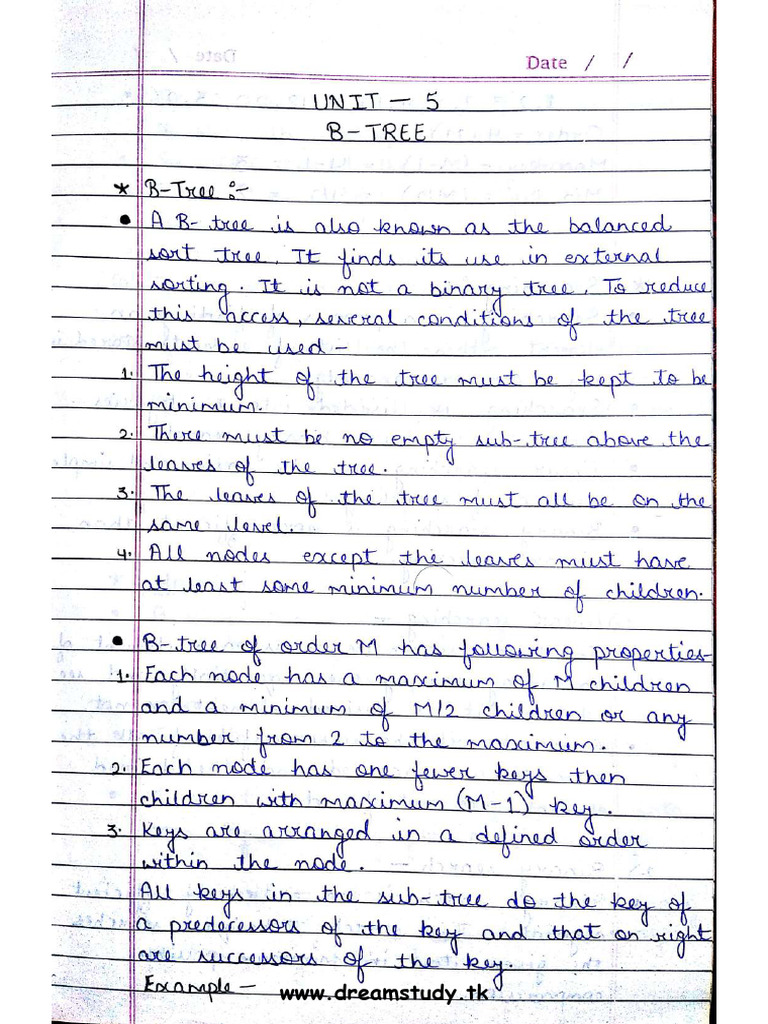 Date / /
UNIT – 5
B-TREE
* B-Tree :-
• A B-tree is also known as the balanced
sort tree. It finds its use in external
sorting. It is not a binary tree. To reduce
this access, several conditions of the tree
must be used –
1. The height of the tree must be kept to be
minimum.
2. There must be no empty sub-tree above the
leaves of the tree.
3. The leaves of the tree must all be on the
same level.
4. All nodes except the leaves must have
at least some minimum number of children.
• B-tree of order M has following properties-
1. Each node has a maximum of M children
and a minimum of M/2 children or any
number from 2 to the maximum.
2. Each node has one fewer keys then
children with maximum (M-1) key.
3. Keys are arranged in a defined order
within the node.
All keys in the sub-tree do the key of
a predecessors of the key and that on right
are successors of the key.
Example –
www.dreamstudy.tk